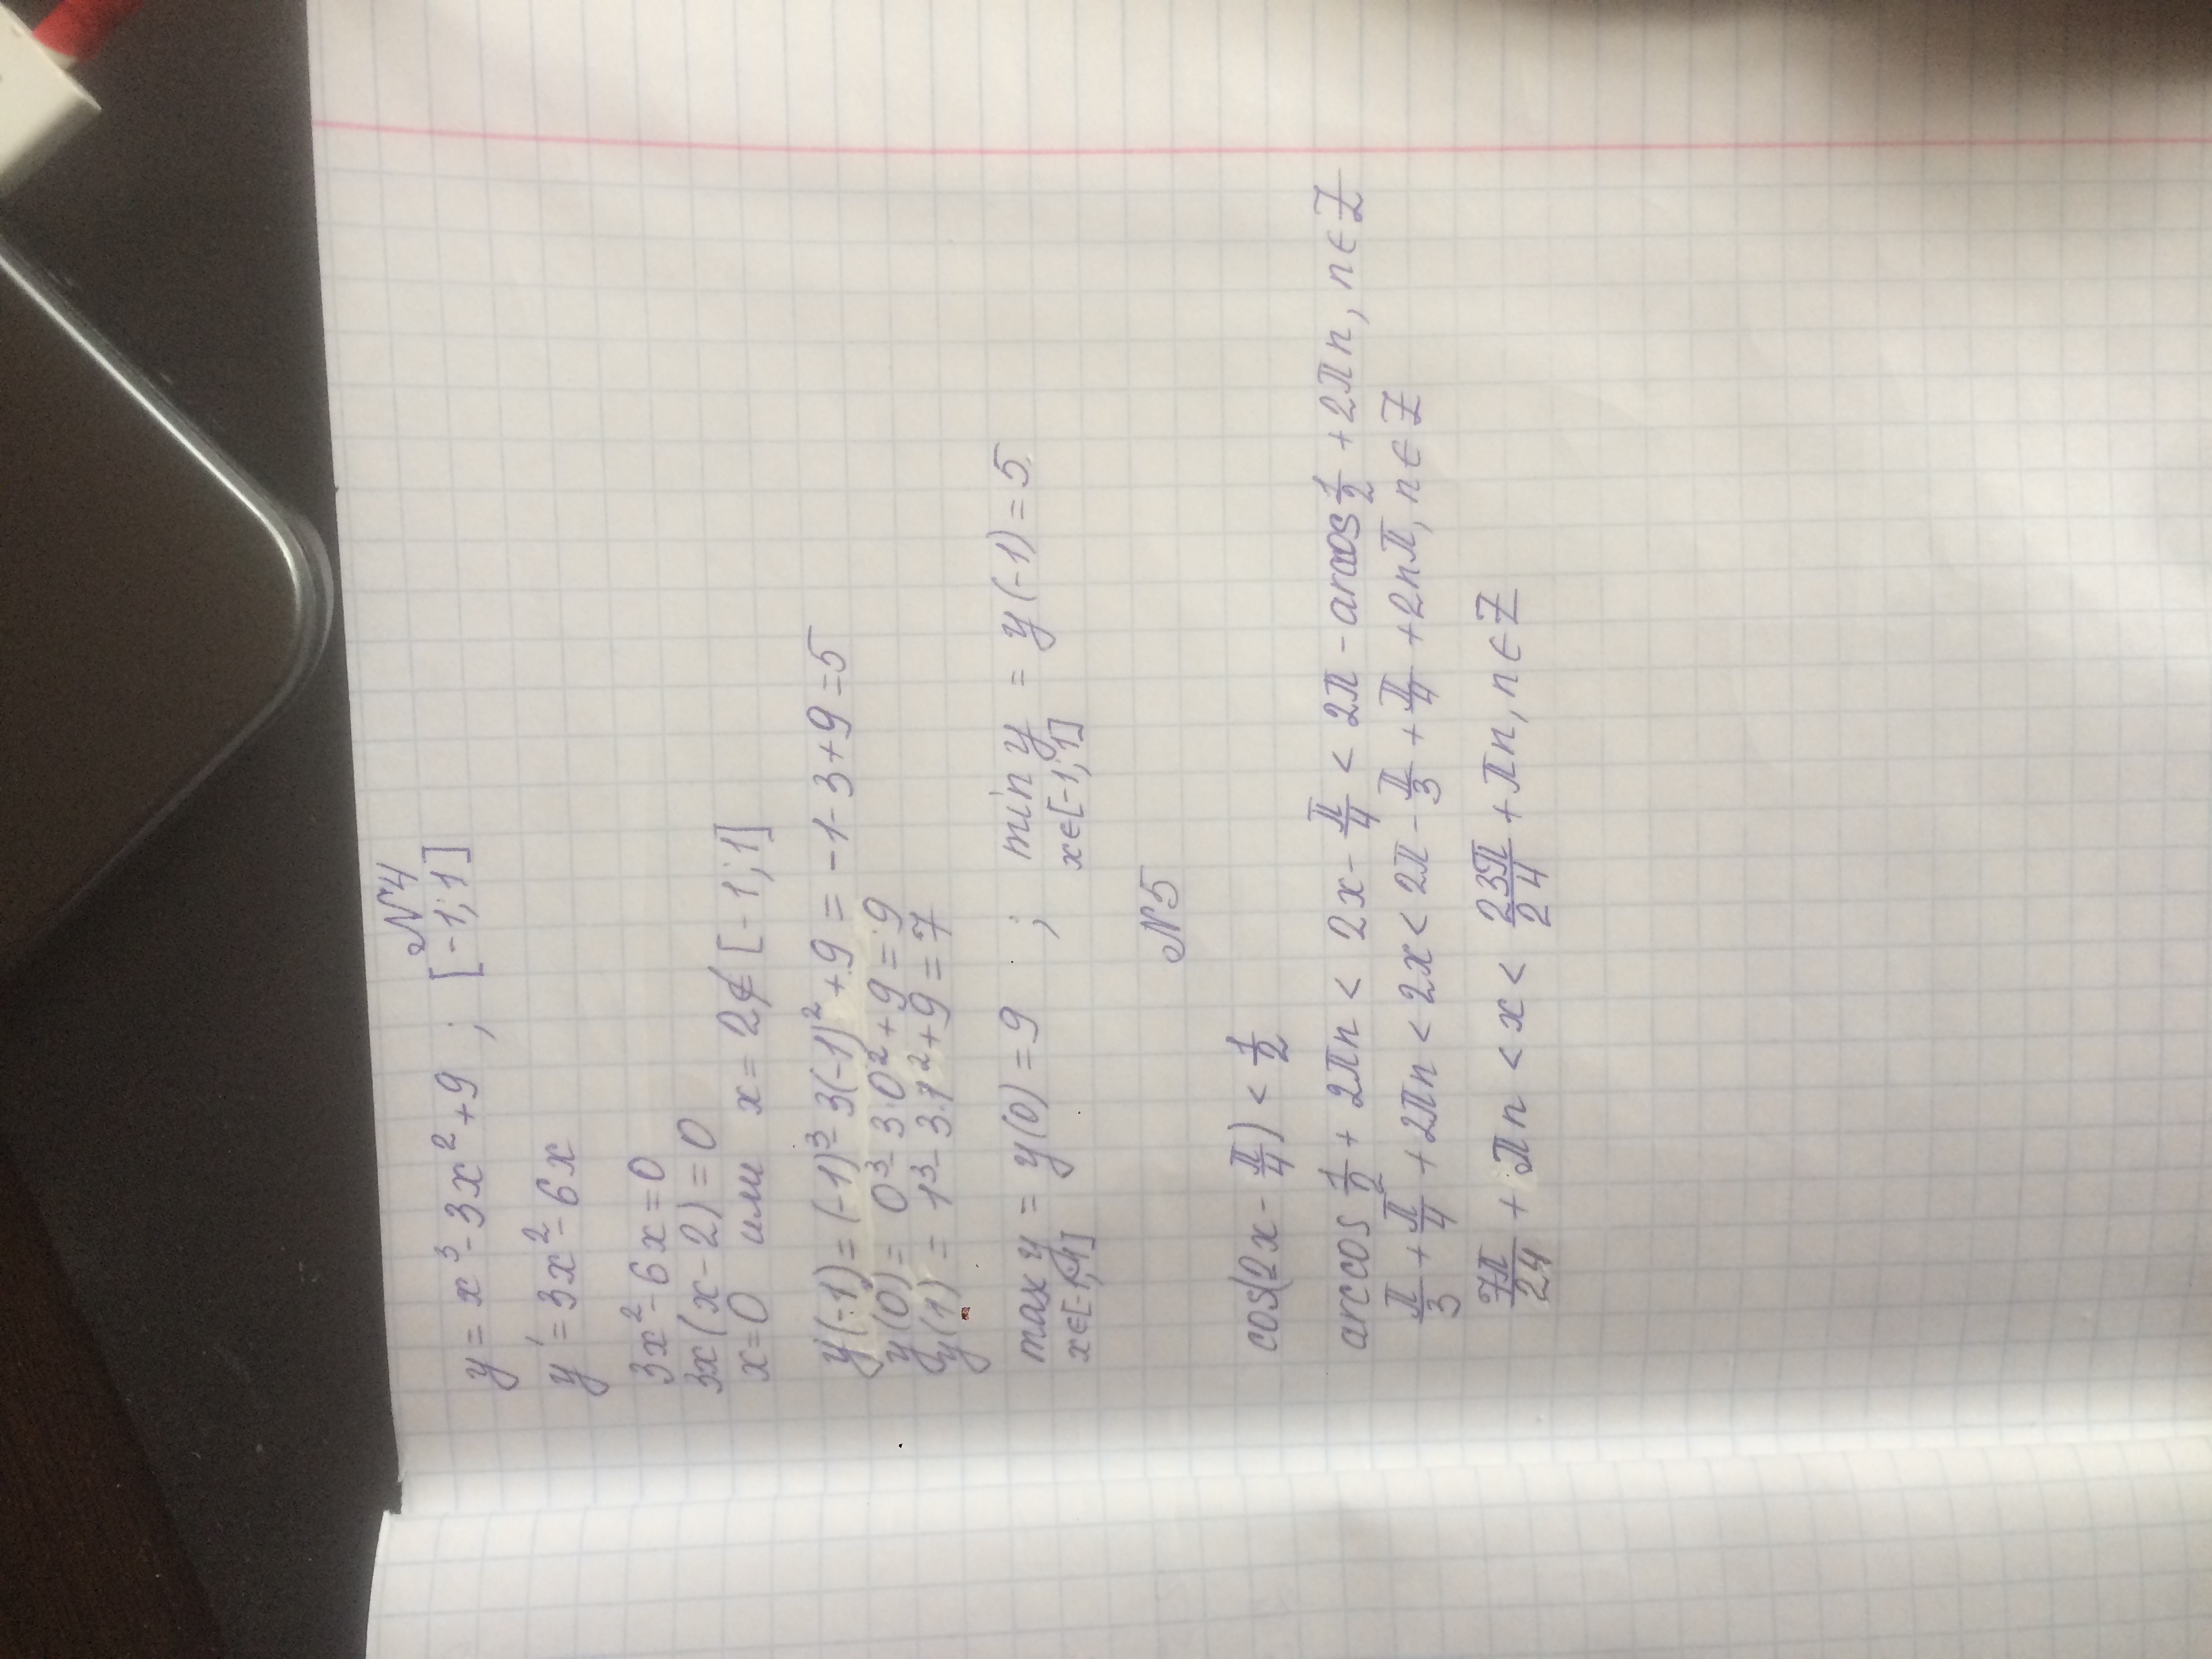 №4
y = x³ - 3x² + 9 ; [-1; 1]
y' = 3x² - 6x
3x² - 6x = 0
3x(x - 2) = 0
x = 0 или x = 2 ∉ [-1; 1]
y(-1) = (-1)³ - 3(-1)² + 9 = -1 - 3 + 9 = 5
y(0) = 0³ - 3·0² + 9 = 9
y(1) = 1³ - 3·1² + 9 = 7
max y = y(0) = 9 ; min y = y(-1) = 5
x∈[-1; 1] x∈[-1; 1]
№5
cos(2x - π/4) < 1/2
arccos 1/2 + 2πn < 2x - π/4 < 2π - arccos 1/2 + 2πn, n∈Z
π/3 + π/4 + 2πn < 2x < 2π - π/3 + π/4 + 2nπ, n∈Z
7π/24 + πn < x < 23π/24 + πn, n∈Z